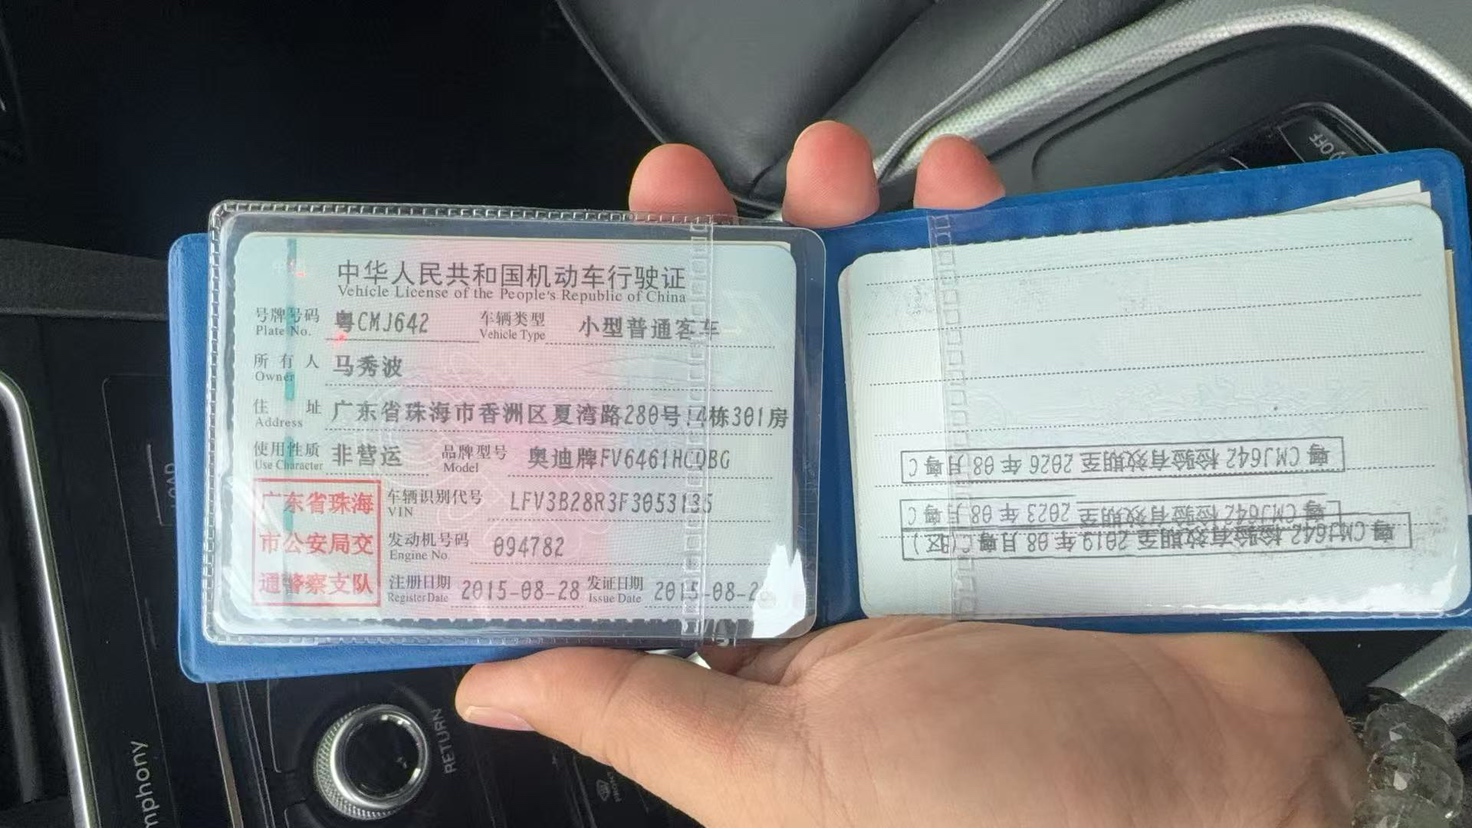 中华人民共和国机动车行驶证
Vehicle License of the People's Republic of China
号牌号码 粤CMJ642 车辆类型 小型普通客车
Plate No. Vehicle Type
所有人 马秀波
Owner
住址 广东省珠海市香洲区夏湾路280号14栋301房
Address
使用性质 非营运 品牌型号 奥迪牌FV6461HCQBG
Use Character Model
广东省珠海
市公安局交
通警察支队
车辆识别代号 LFV3B28R3F3053135
VIN
发动机号码 094782
Engine No.
注册日期 2015-08-28 发证日期 2015-08-28
Register Date Issue Date
粤CMJ642 检验有效期至 2019 年 08 月粤C(区)
粤 CMJ642 检验有效期至 2023 年 08 月粤 C
粤 CMJ642 检验有效期至 2026 年 08 月粤 C
RETURN
LOAD
mphony
OFF